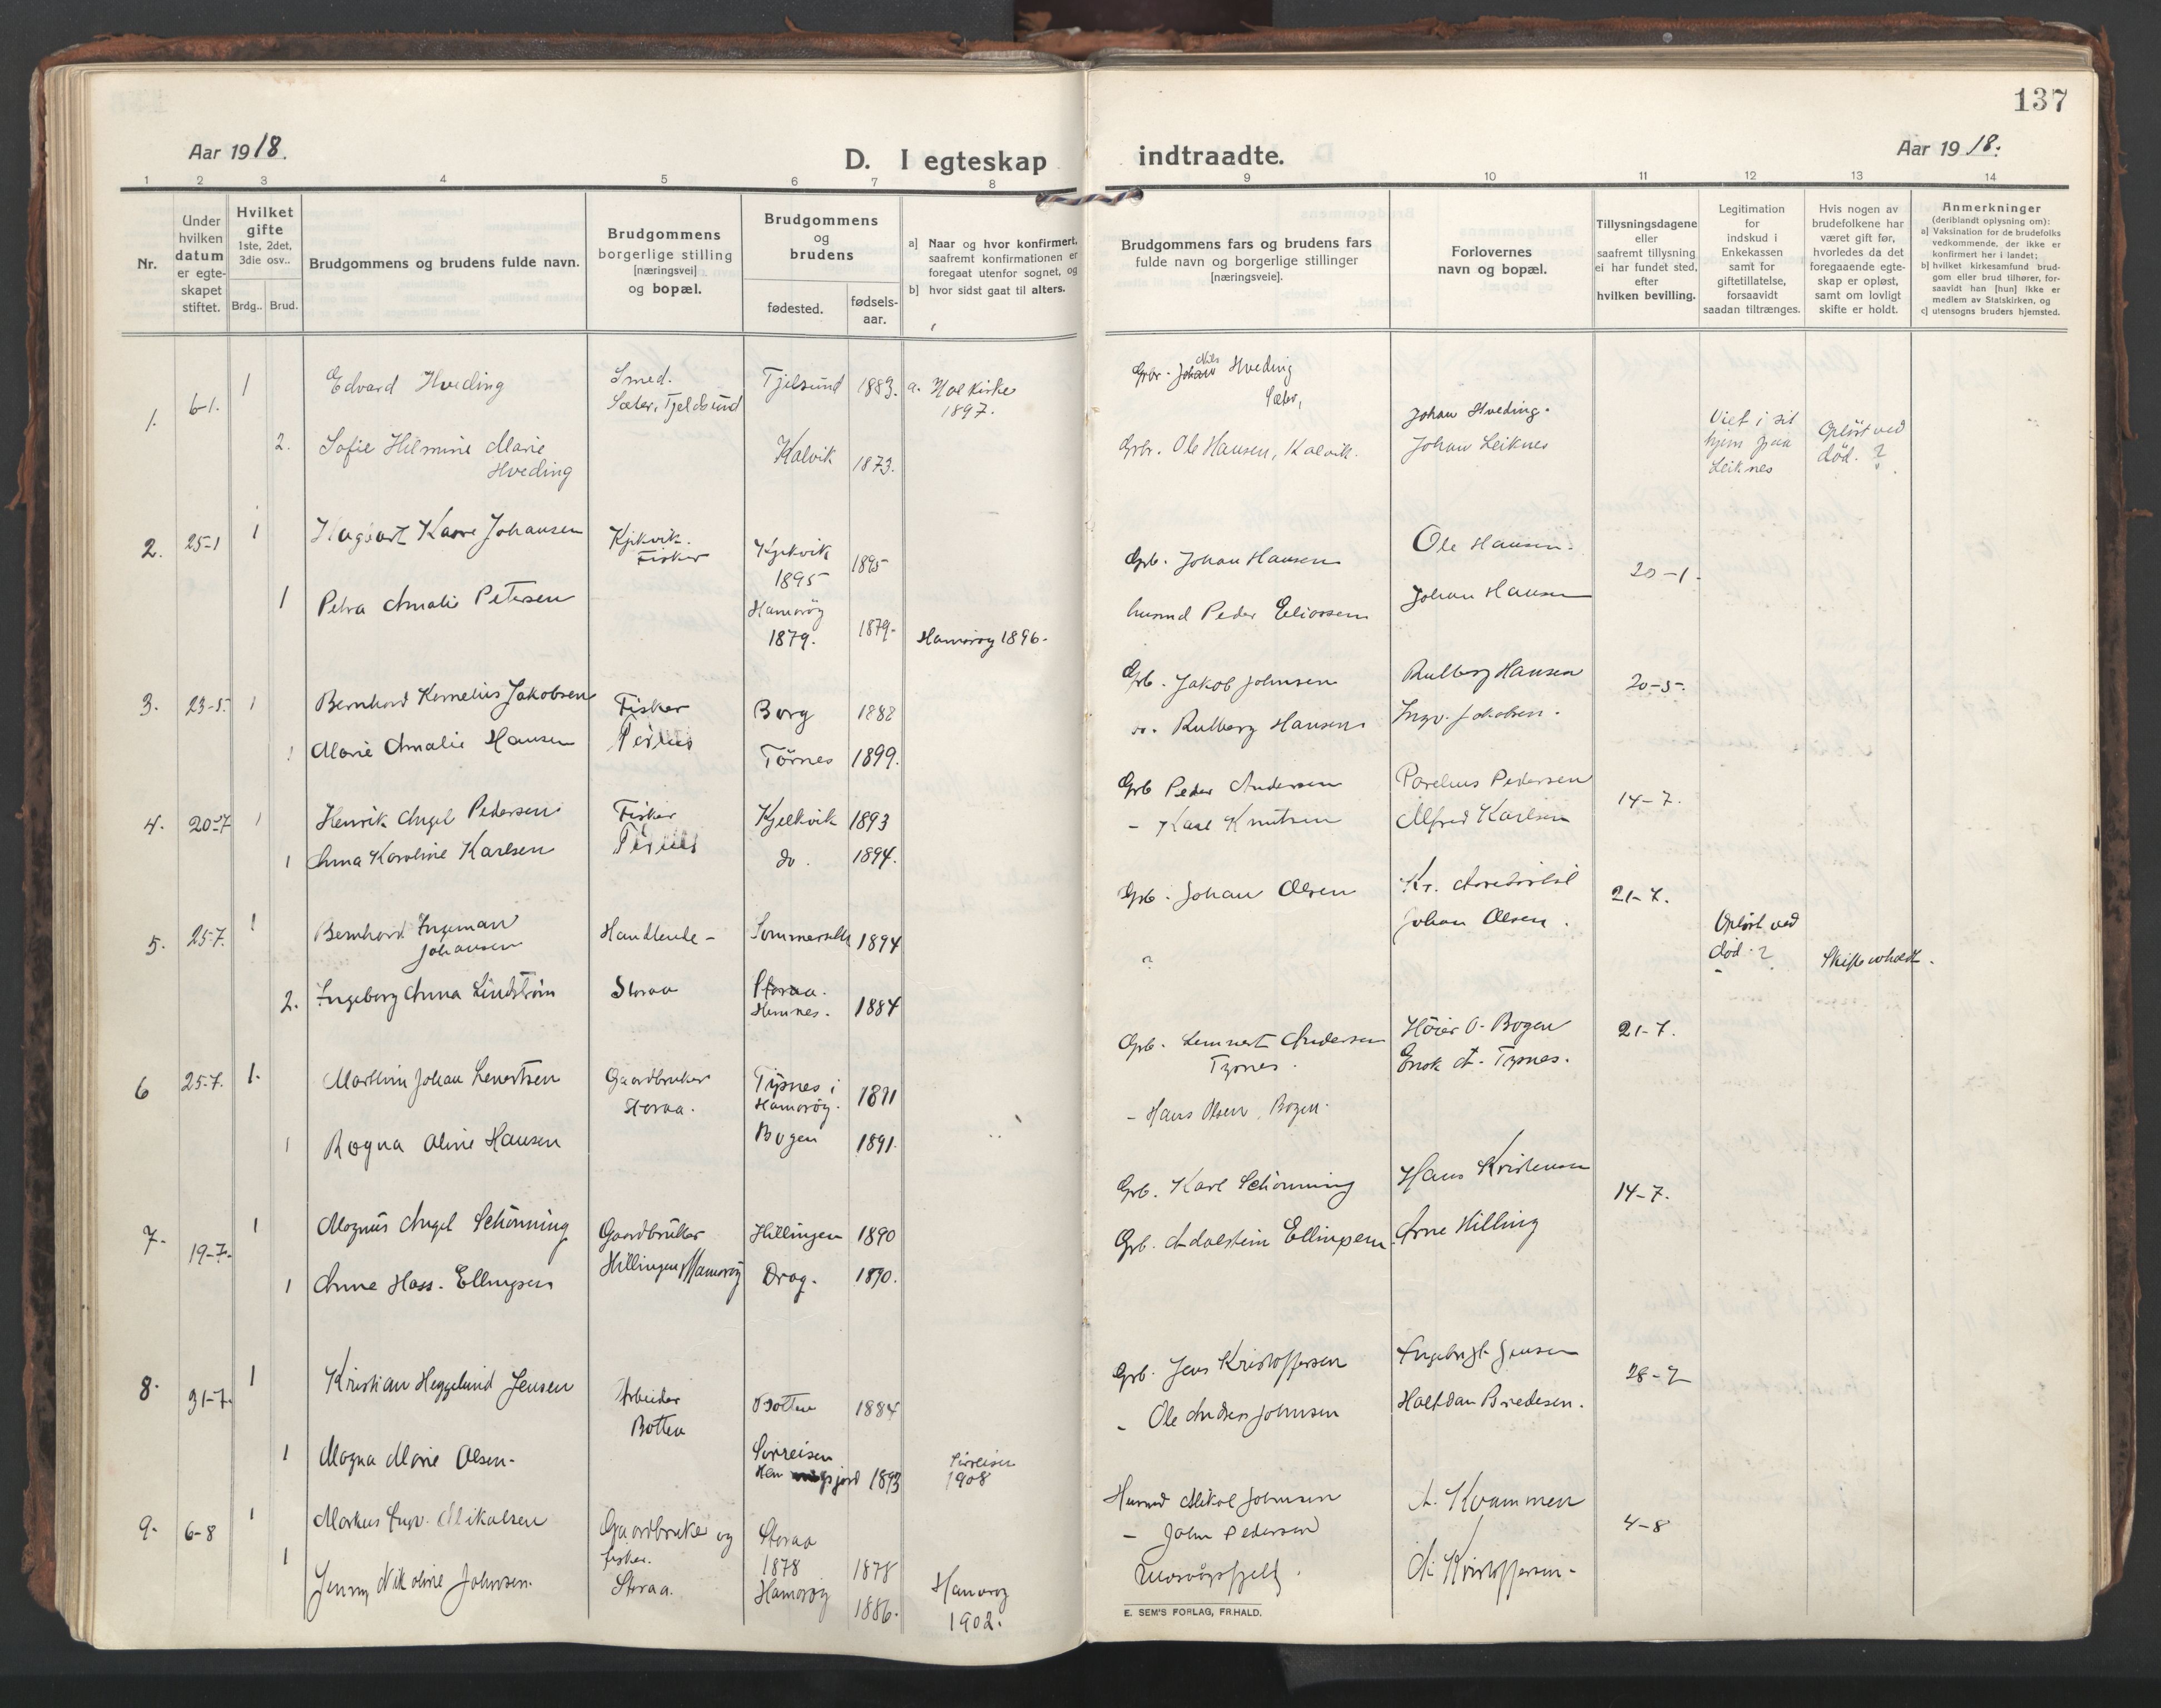 137
Aar 1918.
D. I egteskap indtraadte.
Aar 1918.
1 2 3 4 5 6 7 8 9 10 11 12 13 14
Nr.
Under hvilken datum er egte-skapet stiftet.
Hvilket gifte 1ste, 2det, 3die osv..
Brdg.. Brud.
Brudgommens og brudens fulde navn.
Brudgommens borgerlige stilling [næringsvei] og bopæl.
Brudgommens og brudens
fødested.
fødsels-aar.
a] Naar og hvor konfirmert, saafremt konfirmationen er foregaat utenfor sognet, og
b] hvor sidst gaat til alters.
Brudgommens fars og brudens fars fulde navn og borgerlige stillinger [næringsveie].
Forlovernes navn og bopæl.
Tillysningsdagene eller saafremt tillysning ei har fundet sted, efter hvilken bevilling.
Legitimation for indskud i Enkekassen samt for giftetillatelse, forsaavidt saadan tiltrænges.
Hvis nogen av brudefolkene har været gift før, hvorledes da det foregaaende egte-skap er opløst, samt om lovligt skifte er holdt.
Anmerkninger (deriblandt oplysning om):
a] Vaksination for de brudefolks vedkommende, der ikke er konfirmert her i landet;
b] hvilket kirkesamfund brud-gom eller brud tilhører, for-saavidt han [hun] ikke er medlem av Statskirken, og
c] utensogns bruders hjemsted.
1. 6-1. 1 Edvard Hveding Smed. Sæter, Tjeldsund Tjelsund 1883. a. Hol kirke 1897. Grbr. Johan Nils Hveding Sæter, Johan Hveding.
2. Sofie Hilmine Marie Hveding Kalvik 1873. Grbr. Ole Hansen, Kalvik. Johan Leiknes Viet i sit hjem paa Leiknes Opløst ved død. ?
2. 25-1 1 Hagbart Kaare Johansen Kjikvik. Fisker Kjikvik 1895 1895 Grb. Johan Hansen Ole Hansen. 20-1.
1 Petra Amalie Petersen Hamarøy 1879. 1879. Hamarøy 1896. husmd Peder Eliassen Johan Hansen
3. 23-5. 1 Bernhard Kornelius Jakobsen Fisker Borg 1888 Grb. Jakob Johnsen Rulberg Hansen 20-5.
1 Marie Amalie Hansen Tørnes 1899. do. Rulberg Hansen Ingv. Jakobsen.
4. 20-7 1 Henrik Angel Pedersen Fisker Kjelkvik 1893 Grb Peder Andersen Parelius Pedersen 14-7.
1 Anna Karoline Karlsen do. 1894. - Karl Knutsen Alfred Karlsen
5. 25-7. 1 Bernhard Ingeman Johansen Handlende - 1894 Grb. Johan Olsen Kr. 21-7.
Johan Olsen.
2. Ingeborg Anna Lindstrøm Storaa Storaa. Hemnes. 1884 ? Opløst ved død. ? Skifte avholdt.
6 25-7. 1. Marthin Johan Lenertsen Gaardbruker Storaa. Tysnes i Hamarøy. 1891 Grb. Lennert Andersen Tysnes. Høier O. Bogen 21-7.
1 Ragna Oline Hansen Bogen 1891. - Hans Olsen, Bogen. Enok A. Tysnes.
7. 19-7. 1 Magnus Angel Schønning Gaardbruker Hillingen Hamarøy Hillingen 1890 Grb. Karl Schønning Hans Kristensen 14-7.
1 Anne Hass. Ellingsen Drag. 1890. Grb. Adalstein Ellingsen Arne Hilling
8. 31-7. 1 Kristian Heggelund Jensen Arbeider Botten Botten 1884 Grb. Jens Kristoffersen Ingebrigt Jensen 28-7
1 Magna Marie Olsen. Sørreisen 1893 Sørreisen 1908 - Ole Anders Johnsen Halfdan Bredesen.
9. 6-8 1 Markus Ingv. Mikalsen Gaardbruker og fisker. Storaa. Storaa 1878 1878 Husmd Mikal Johnsen A. Kvammen 4-8
1 Jenny Nikoline Johnsen. Hamarøy 1886. Hamarøy 1902. - John Pedersen A. Kristoffersen.
E. SEM'S FORLAG, FR.HALD.